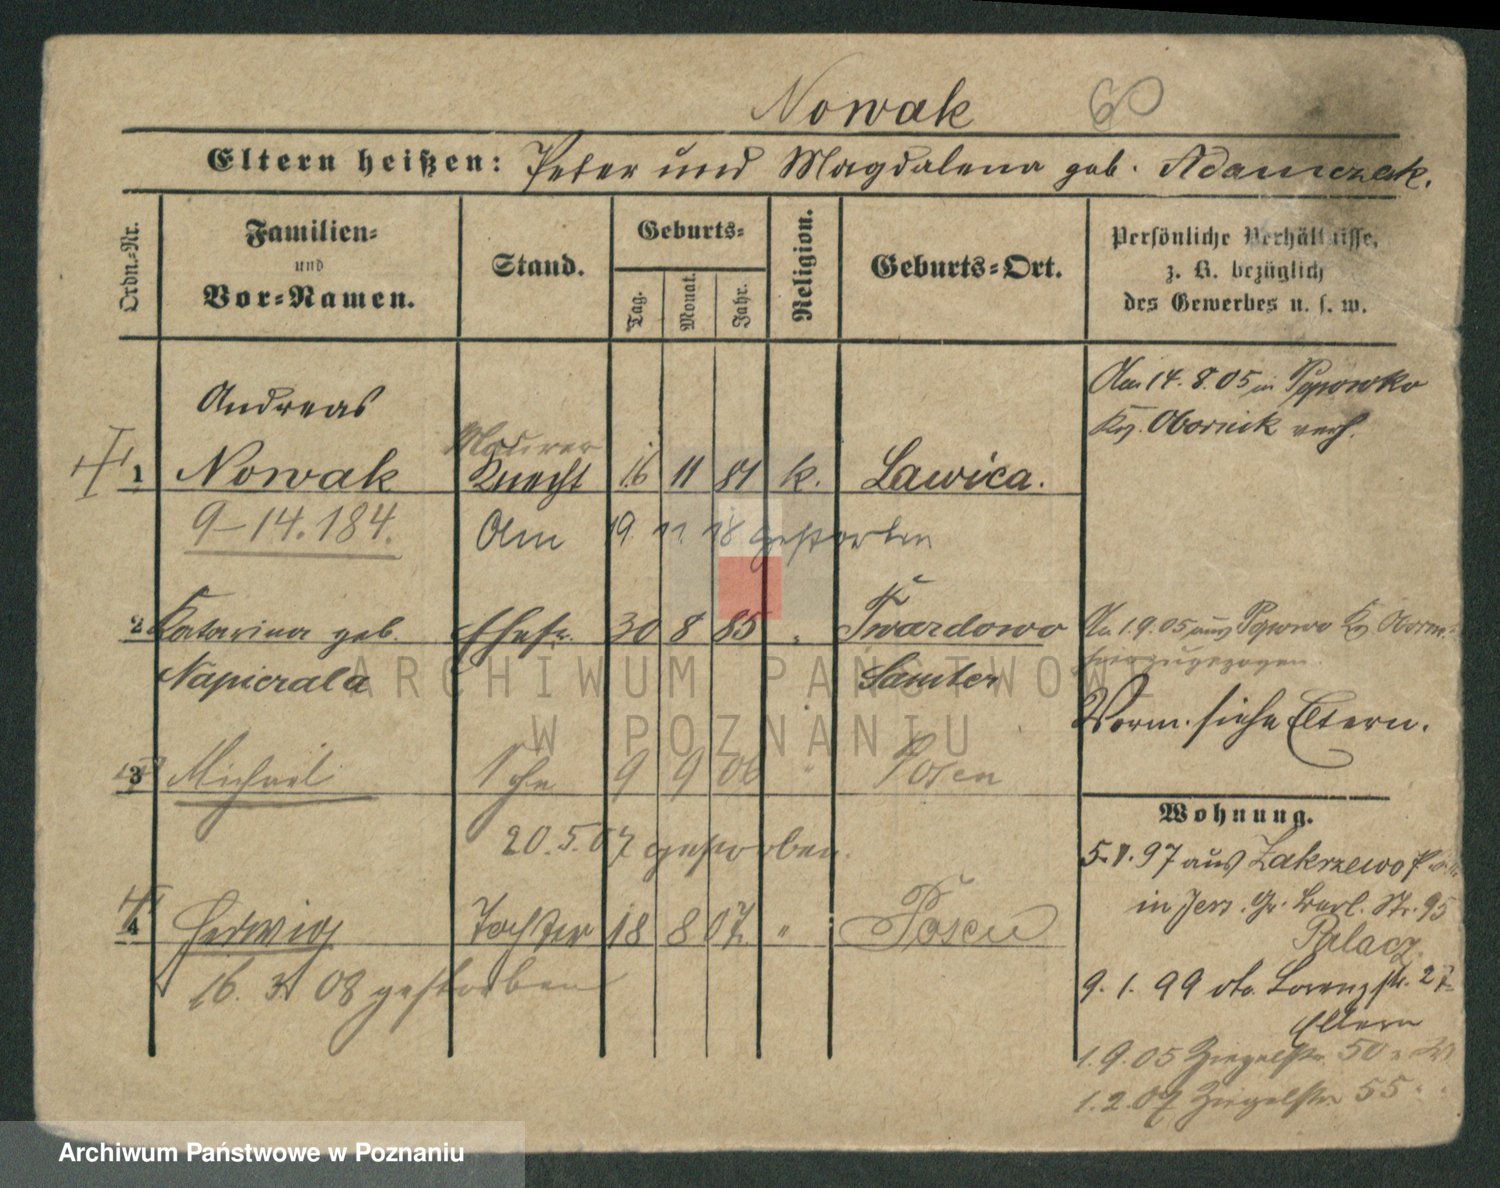 Nowak 60
Eltern heißen: Peter und Magdalena geb. Adamczak.
Ordn.-Nr.
Familien-
und
Vor-Namen.
Stand.
Geburts-
Tag.
Monat.
Jahr.
Religion.
Geburts-Ort.
Persönliche Verhältnisse,
z. B. bezüglich
des Gewerbes u. s. w.
Andreas
Maurer
1 Nowak Knecht 16 11 81 k. Lawica.
9-14.184. Am 19. 11. 18 gestorben
2 Katarina geb. Ehefr. 30 8 85 " Twardowo
Napierala Samter
3 Michael Sohn 9 9 06 " Posen
20.5.07 gestorben.
4 Hedwig Tochter 18 8 07. " Posen
16. 3. 08 gestorben
Am 14.8.05 in Popowko
Krs. Obornik verh.
Am 1.9.05 aus Popowo Krs Obornik
hierzugezogen
Vorm. siehe Eltern.
Wohnung.
5.1.97 aus Zakrzewo
in Jers. Gr. Berl. Str. 95
Palacz.
9. 1. 99 do. Lorenzstr. 27
Eltern
1.9.05 Ziegelstr. 50
1.2.07 Ziegelstr. 55
ARCHIWUM PAŃSTWOWE
W POZNANIU
Archiwum Państwowe w Poznaniu